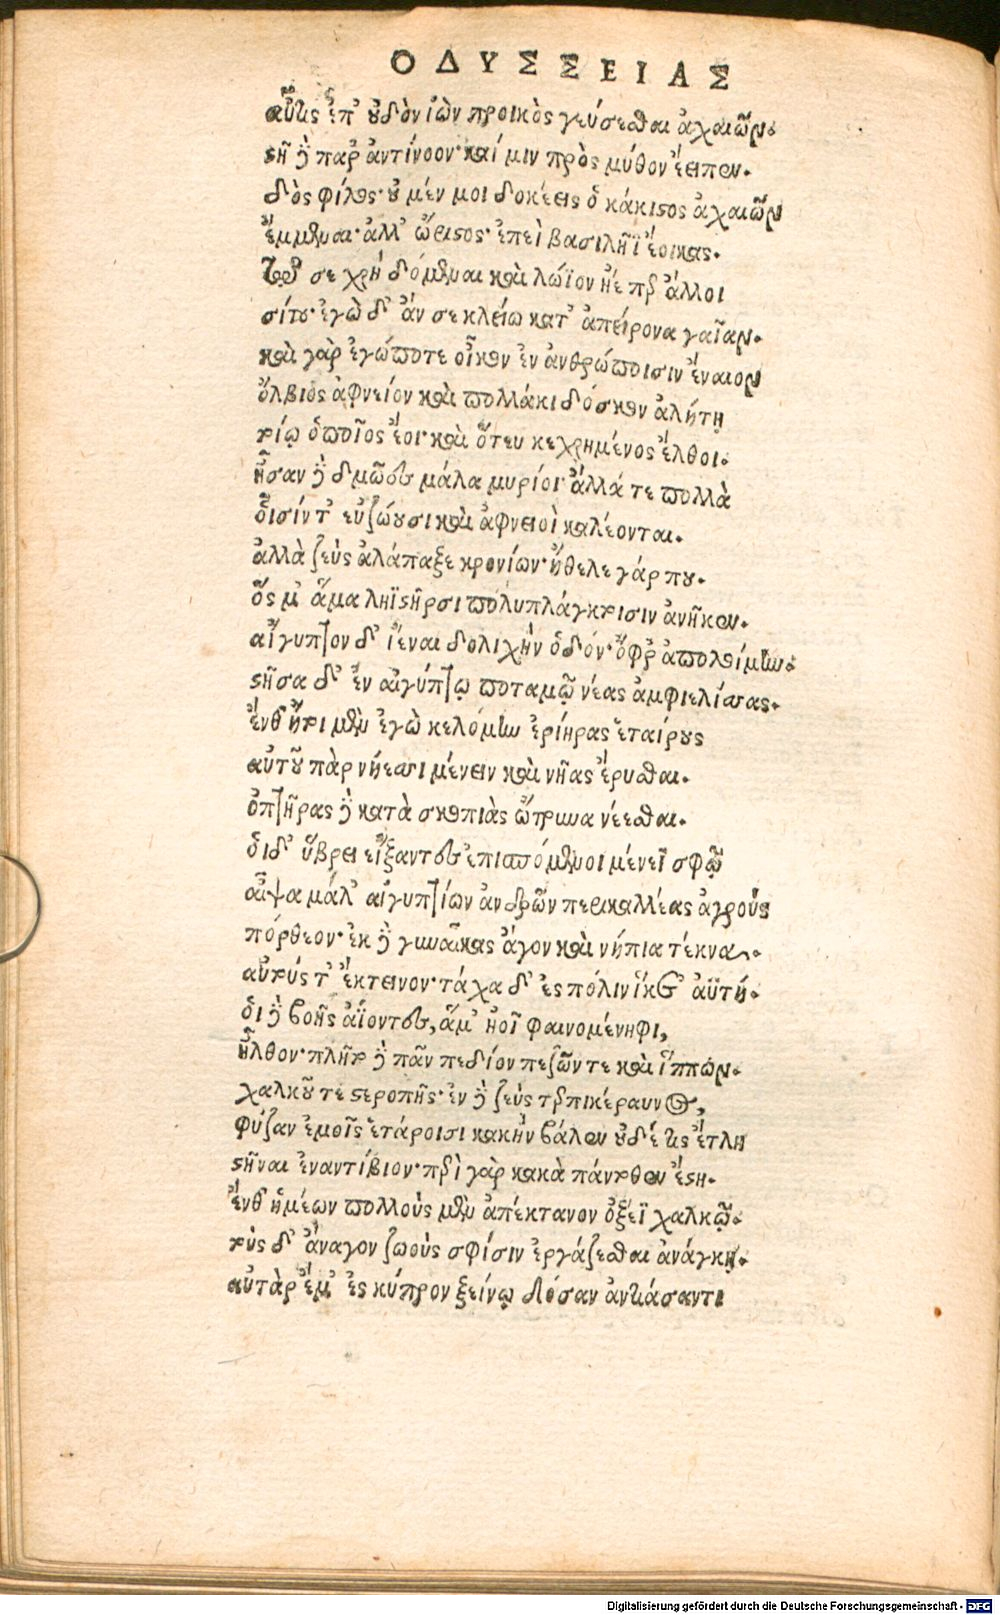 ΟΔΥΣΣΕΙΑΣ
αὖτις ἐπ' οὐδὸν ἰὼν προικὸς γεύσεσθαι ἀχαιῶν.
στῆ δὲ παρ' ἀντίνοον· καί μιν πρὸς μύθον ἔειπεν.
δὸς φίλος· οὐ μέν μοι δοκέεις ὁ κάκιστος ἀχαιῶν
ἔμμεναι· ἀλλ' ὤριστος· ἐπεὶ βασιλῆϊ ἔοικας.
τῷ σε χρὴ δόμεναι καὶ λώϊον ἠέ περ ἄλλοι
σίτου· ἐγὼ δ' ἄν σε κλείω κατ' ἀπείρονα γαῖαν.
καὶ γὰρ ἐγώ ποτε οἶκον ἐν ἀνθρώποισιν ἔναιον
ὄλβιος ἀφνείον καὶ πολλάκι δόσκον ἀλήτῃ
τοίῳ ὁποῖος ἔοι· καὶ ὅτευ κεχρημένος ἔλθοι.
ἦσαν δὲ δμῶες μάλα μυρίοι· ἄλλά τε πολλὰ
οἷσίν τ' εὐζώουσι καὶ ἀφνειοὶ καλέονται.
ἀλλὰ ζεὺς ἀλάπαξε κρονίων· ἤθελε γάρ που.
ὅς μ' ἅμα ληϊστῆρσι πολυπλάγκτοισιν ἀνῆκεν.
αἴγυπτον δ' ἰέναι δολιχὴν ὁδόν· ὄφρ' ἀπολοίμην.
στῆσα δ' ἐν αἰγύπτῳ ποταμῷ νέας ἀμφιελίσσας.
ἔνθ' ἤτοι μὲν ἐγὼ κελόμην ἐρίηρας ἑταίρους
αὐτοῦ πὰρ νήεσσι μένειν καὶ νῆας ἔρυσθαι.
ὀπτῆρας δὲ κατὰ σκοπιὰς ὤτρυνα νέεσθαι.
οἱ δ' ὕβρει εἴξαντες ἐπισπόμενοι μένεϊ σφῷ
αἶψα μάλ' αἰγυπτίων ἀνδρῶν περικαλλέας ἀγροὺς
πόρθεον· ἐκ δὲ γυναῖκας ἄγον καὶ νήπια τέκνα.
αὐτούς τ' ἔκτεινον· τάχα δ' ἐς πόλιν ἵκετ' ἀϋτή.
οἱ δὲ βοῆς ἀΐοντες, ἅμ' ἠοῖ φαινομένηφι,
ἦλθον· πλῆτο δὲ πᾶν πεδίον πεζῶν τε καὶ ἵππων.
χαλκοῦ τε στεροπῆς· ἐν δὲ ζεὺς τερπικέραυνος,
φύζαν ἐμοῖς ἑτάροισι κακὴν βάλεν οὐδέ τις ἔτλη
στῆναι ἐναντίβιον· περὶ γὰρ κακὰ πάντοθεν ἔστη.
ἔνθ' ἡμέων πολλοὺς μὲν ἀπέκτανον ὀξέϊ χαλκῷ.
τοὺς δ' ἄναγον ζωοὺς σφίσιν ἐργάζεσθαι ἀνάγκῃ.
αὐτὰρ ἔμ' ἐς κύπρον ξείνῳ δόσαν ἀντιάσαντι
Digitalisierung gefördert durch die Deutsche Forschungsgemeinschaft - DFG